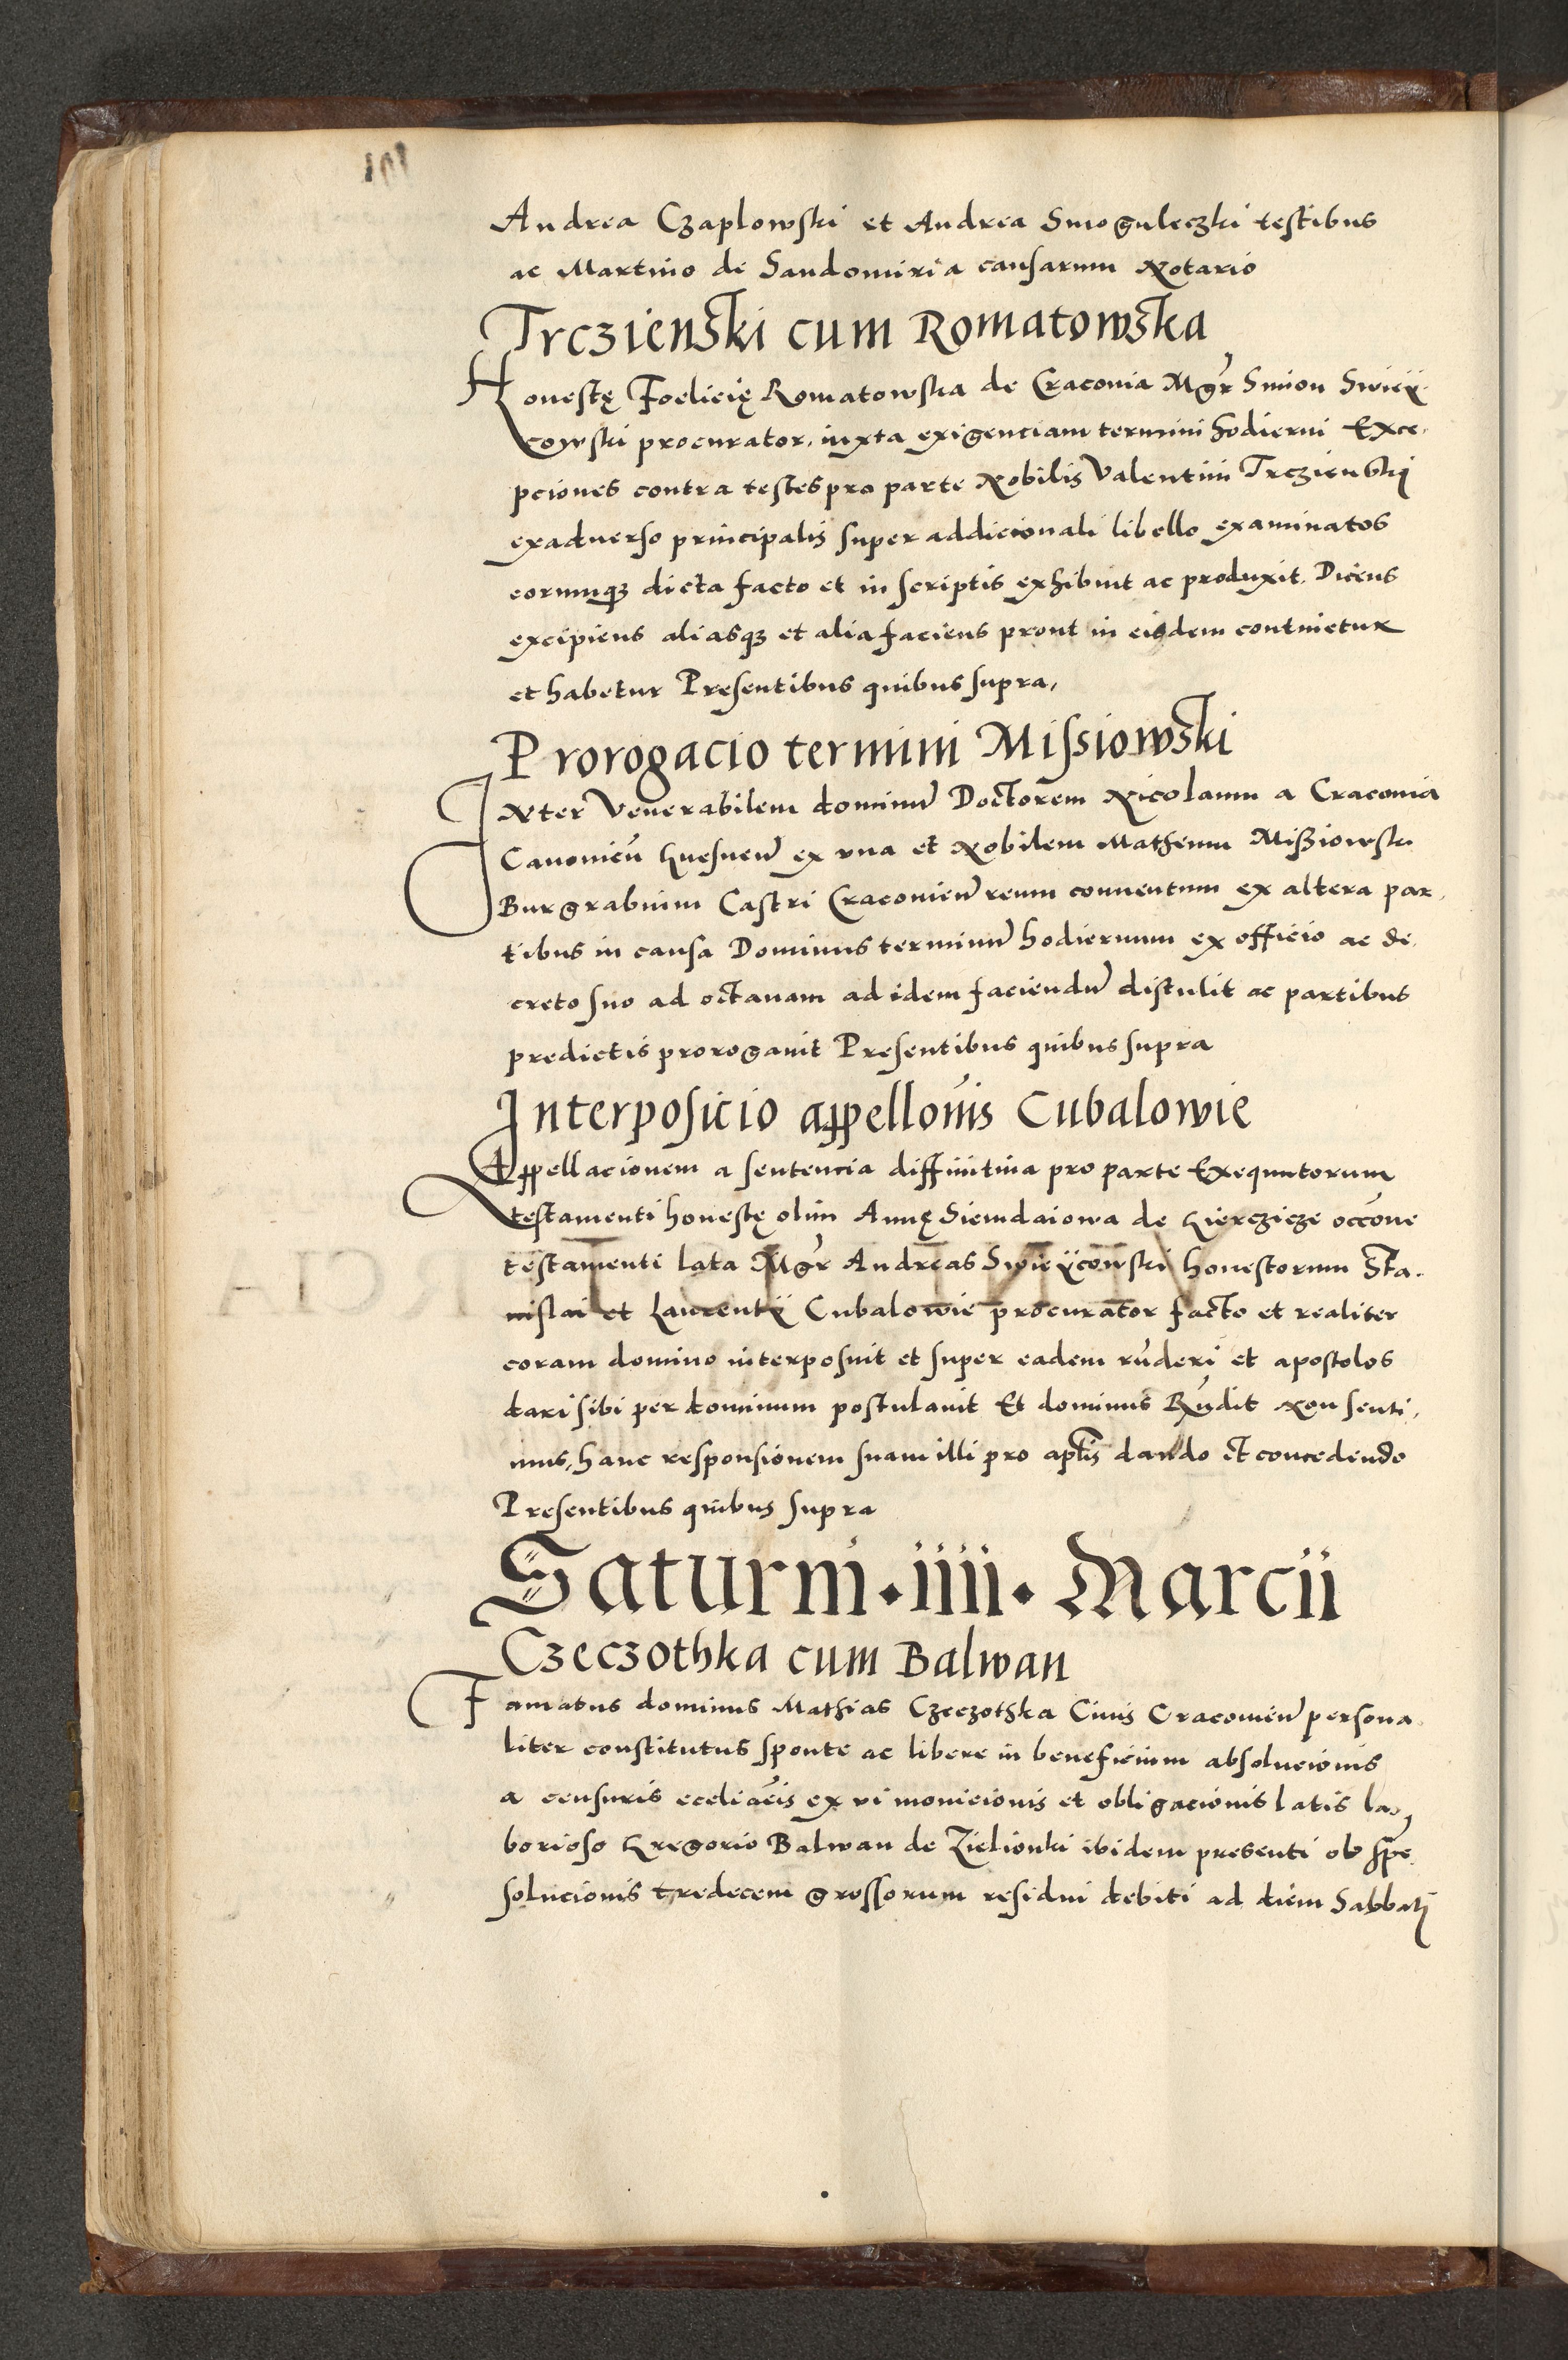 Andrea Czaplowski et Andrea Smoguleczki testibus
ac Martino de Sandomiria causarum Notario
Trczienski cum Romatowska
Honestę Foelicię Romatowska de Cracovia Mgr̄ Simon Swieÿ-
cowski procurator, iuxta exigenciam termini hodierni Exce-
pciones contra testes pro parte Nobilis Valentini Trczienski
exadverso principalis super addicionali libello examinatos
eorumqꝫ dicta facto et in scriptis exhibuit ac produxit. Dicens
excipiens aliasqꝫ et alia faciens prout in eisdem continetur
et habetur Presentibus quibus supra,
Prorogacio termini Missiowski
INter Venerabilem dominū Doctorem Nicolaum a Cracovia
Canonicū Gnesnen̄ ex una et Nobilem Matheum Missiowski
Burgrabium Castri Cracovien̄ reum conventum ex altera par-
tibus in causa Dominus terminū hodiernum ex officio ac de-
creto suo ad octavam ad idem faciendū distulit ac partibus
predictis prorogavit Presentibus quibus supra
Interposicio appellonis Cubalowie
Appellacionem a sentencia diffinitiva pro parte Exequutorum
testamenti honestę olim Annę Siemdaiowa de occōne
testamenti lata Mgr̄ Andreas Swieÿcowski honestorum Sta-
nislai et Laurentÿ Cubalowie procurator facto et realiter
coram domino interposuit et super eadem rūderi et apostolos
dari sibi per dominum postulavit Et dominus Rūdit Non senti-
mus, hanc responsionem suam illi pro aptīs dando et concedendo
Presentibus quibus supra
Saturni · iiii · Marcii
Czeczothka cum Balwan
Famatus dominus Mathias Czeczothka Civis Cracovien̄ persona-
liter constitutus sponte ac libere in beneficium absolucionis
a censuris eccliācis ex vi monicionis et obligacionis latis la-
borioso Gregorio Balwan de Zielionki ibidem presenti ob spe
solucionis tredecem grossorum residui debiti ad diem Sabbati